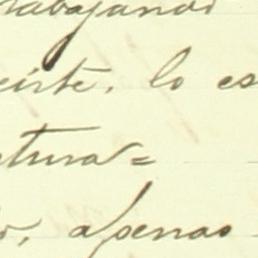 trabajando
eirte, lo es
tura=
o, apenas